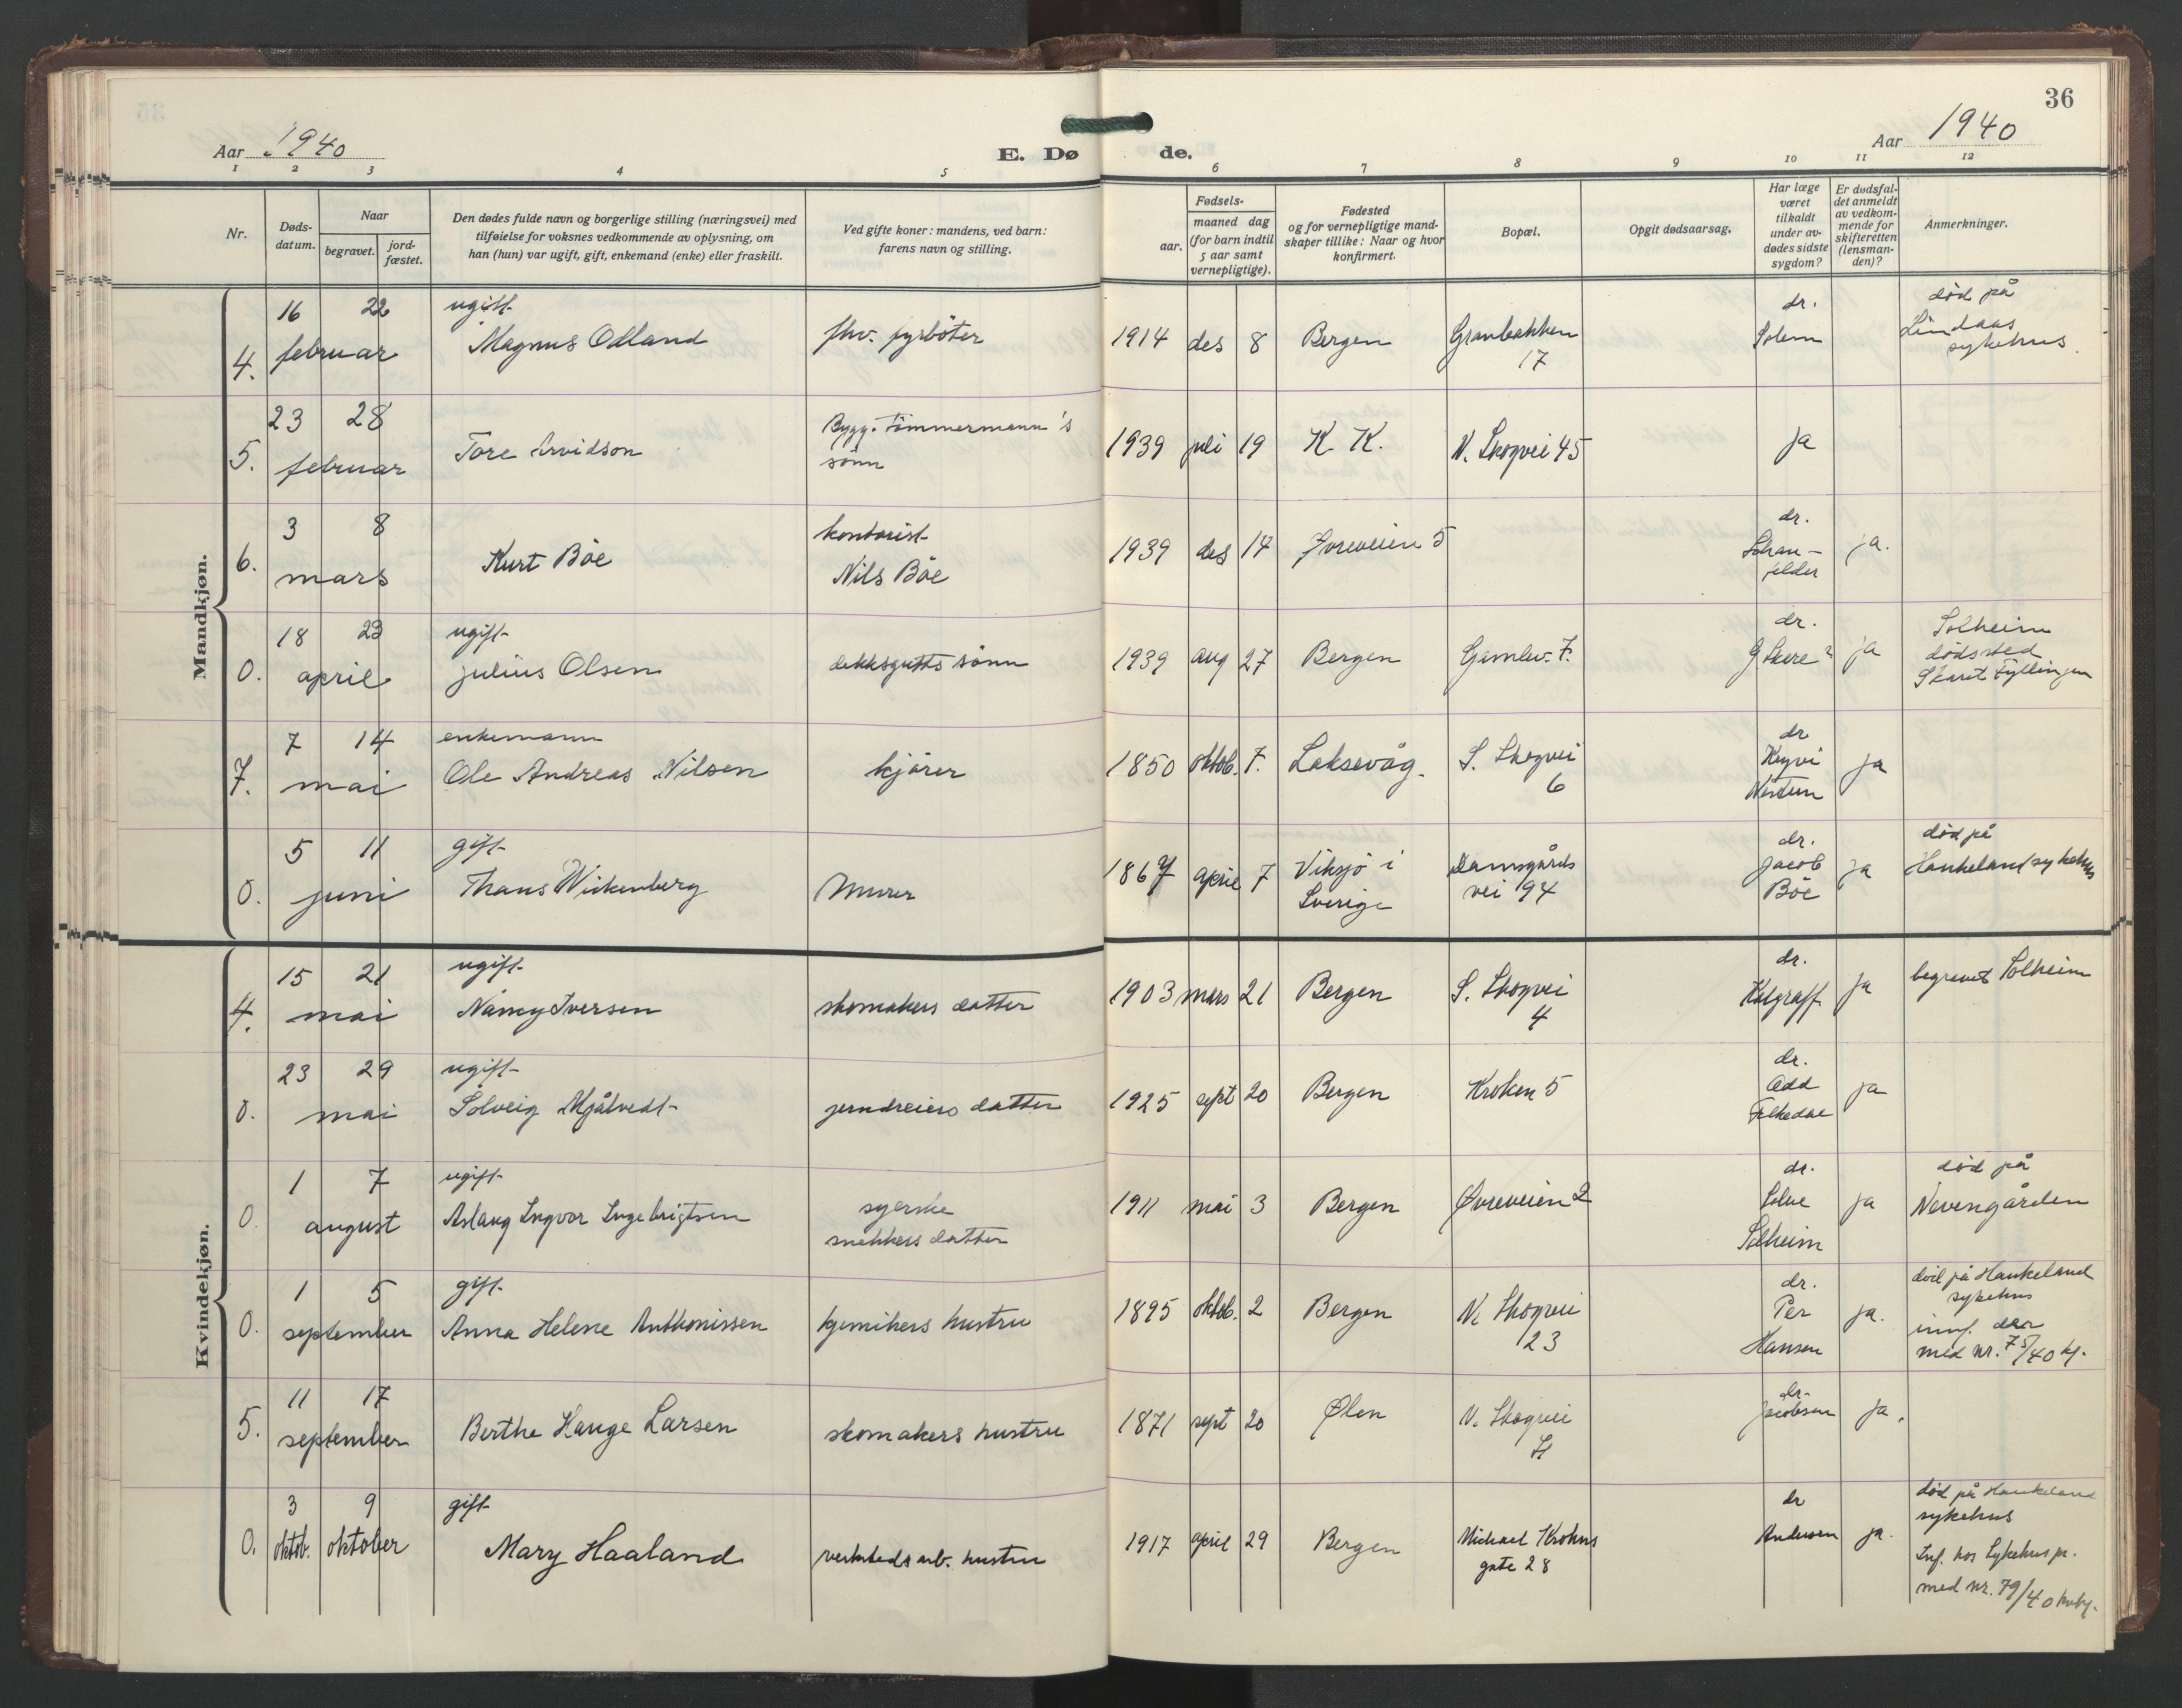 36
Aar 1940
E. Dø
de.
Aar 1940
1 2 3 4 5 6 7 8 9 10 11 12
Nr.
Døds-
datum.
Naar
begravet.
jord-
fæstet.
Den dødes fulde navn og borgerlige stilling (næringsvei) med
tilføielse for voksnes vedkommende av oplysning, om
han (hun) var ugift, gift, enkemand (enke) eller fraskilt.
Ved gifte koner: mandens, ved barn:
farens navn og stilling.
Fødsels-
aar.
maaned dag
(for barn indtil
5 aar samt
vernepligtige).
Fødested
og for vernepligtige mand-
skaper tillike: Naar og hvor
konfirmert.
Bopæl.
Opgit dødsaarsag.
Har læge
været
tilkaldt
under av-
dødes sidste
sygdom?
Er dødsfal-
det anmeldt
av vedkom-
mende for
skifteretten
(lensman-
den)?
Anmerkninger.
Mandkjøn.
16 22 ugift dr. død på
4. februar Magnus Odland fhv. fyrbøter 1914 des 8 Bergen Granbakken Solem Lindaas
17 sykehus.
23 28 Bygg. Tömmermann's
5. februar Tore Arvidson sönn 1939 juli 19 K. K. N. Skogvei 45 ja
3 8 kontorist dr.
6. mars Kurt Böe Nils Böe 1939 des 14 Øvreveien 5 ja.
18 23 ugift dr. Solheim
0. april julius Olsen dekksgutts sönn 1939 aug 27 Bergen Gamlev. 7. ja dödsted
Skaret Fyllingen
7 14 enkemann dr
7. mai Ole Andreas Nilsen kjörer 1850 oktob. 7. Laksevåg. S. Skogvei ja
6 Nestun
5 11 gift dr. död på
0. juni Thans Wickenberg Murer 1867 april 7 Viksjö i Damsgårds Jacob ja Haukeland sykehus
Sverige vei 94 Böe
Kvindekjøn.
15 21 ugift dr.
4. mai Nancy Iversen skomakers datter 1903 mars 21 Bergen S. Skogvei Kalgraff ja begravet Solheim
4
23 29 ugift dr.
0. mai Solveig Mjåtvedt jerndreiers datter 1925 sept 20 Bergen Kroken 5 Odd ja
Falkedal
1 7 ugift dr. död på
0. august Aslaug Ingvor Ingebrigtsen syerske 1911 mai 3 Bergen Øvreveien 2 Solve ja Nevengården
snekkers datter Solheim
1 5 gift dr. död på Haukeland
sykehus
0. september Anna Helene Anthonissen kjemikers hustru 1895 oktob. 2 Bergen N. Skogvei Per ja. innf. der
23 Hansen med nr. 75/40 kj.
11 17 dr.
5. september Berthe Hauge Larsen skomakers hustru 1871 sept 20 Ølen N. Skogvei Jacobsen ja.
3 9 gift dr död på Haukeland
sykehus
0. oktob. oktober Mary Haaland verksteds arb. hustru 1917 april 29 Bergen Michael Krohns Andersen ja. Inf. hos Sykehus pr.
gate 28 med nr. 79/40 kvkj.